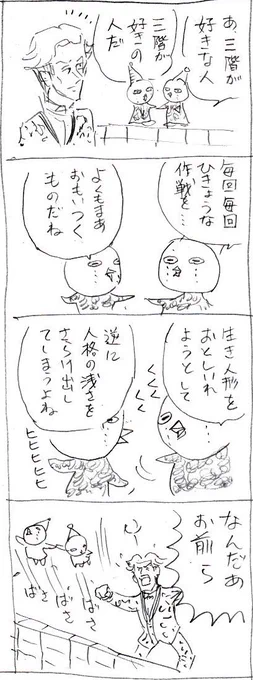 あ、三階が
好きな人
三階が
好きの
人だ
毎回毎回
ひきょうな
作戦を…
よくもまあ
おもいつく
ものだね
生き人形を
おとしいれ
ようとして
くくく
逆に
人格の浅さを
さらけ出し
てしまうよね
ヒヒヒヒヒ
なんだぁ
お前ら
ばさ
ばさ
ばさ